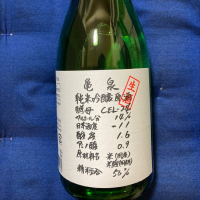 亀泉
生酒
純米吟醸原酒
酵母 CEL-24
アルコール分 14%
日本酒度 -11
酸度 1.6
アミノ酸 0.9
原材料名 米(国産)
精米歩合 50%